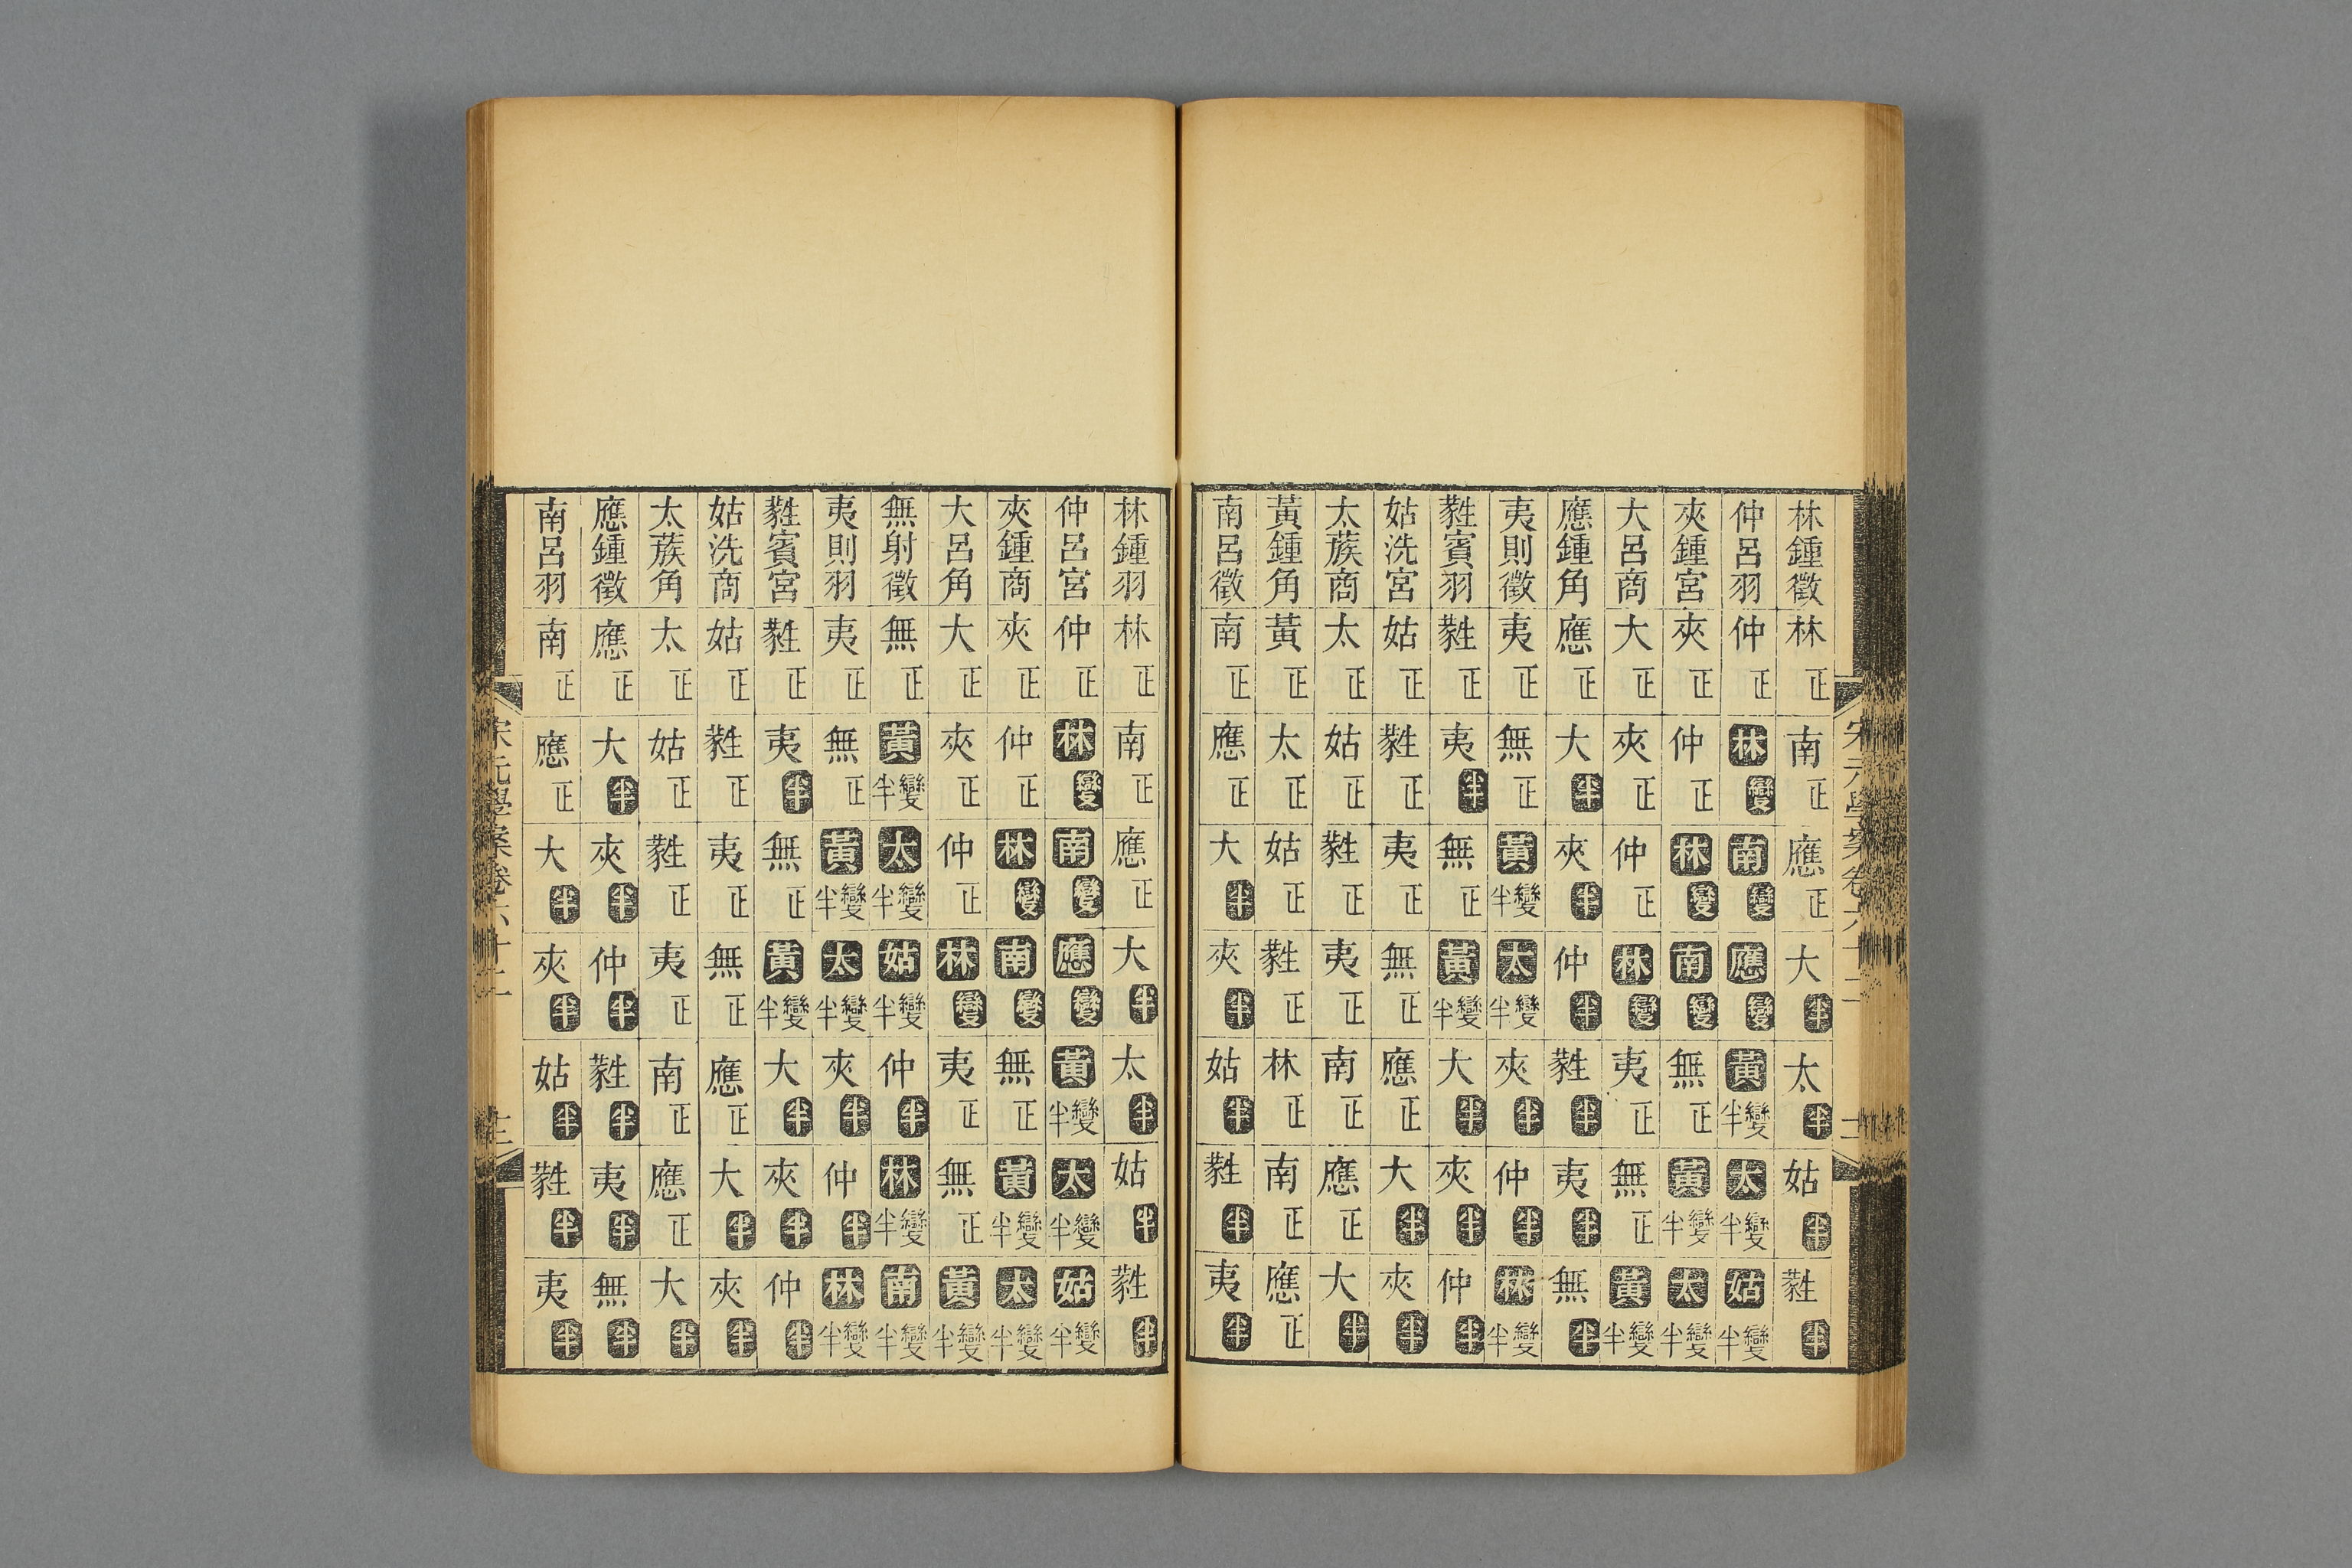 林鍾徵林正南正應正大半太半姑半蕤半
仲呂羽仲正林變南變應變黃變半太變半姑變半
夾鍾宮夾正仲正林變南變無正黃變半太變半
大呂商大正夾正仲正林變夷正無正黃變半
應鍾角應正大半夾半仲半蕤半夷半無半
夷則徵夷正無正黃變半太變半夾半仲半林變半
蕤賓羽蕤正夷半無正黃變半大半夾半仲半
姑洗宮姑正蕤正夷正無正應正大半夾半
太蔟商太正姑正蕤正夷正南正應正大半
黃鍾角黃正太正姑正蕤正林正南正應正
南呂徵南正應正大半夾半姑半蕤半夷半
林鍾羽林正南正應正大半太半姑半蕤半
仲呂宮仲正林變南變應變黃變半太變半姑變半
夾鍾商夾正仲正林變南變無正黃變半太變半
大呂角大正夾正仲正林變夷正無正黃變半
無射徵無正黃變半太變半姑變半仲半林變半南變半
夷則羽夷正無正黃變半太變半夾半仲半林變半
蕤賓宮蕤正夷半無正黃變半大半夾半仲半
姑洗商姑正蕤正夷正無正應正大半夾半
太蔟角太正姑正蕤正夷正南正應正大半
應鍾徵應正大半夾半仲半蕤半夷半無半
南呂羽南正應正大半夾半姑半蕤半夷半
宋元學案卷六十二